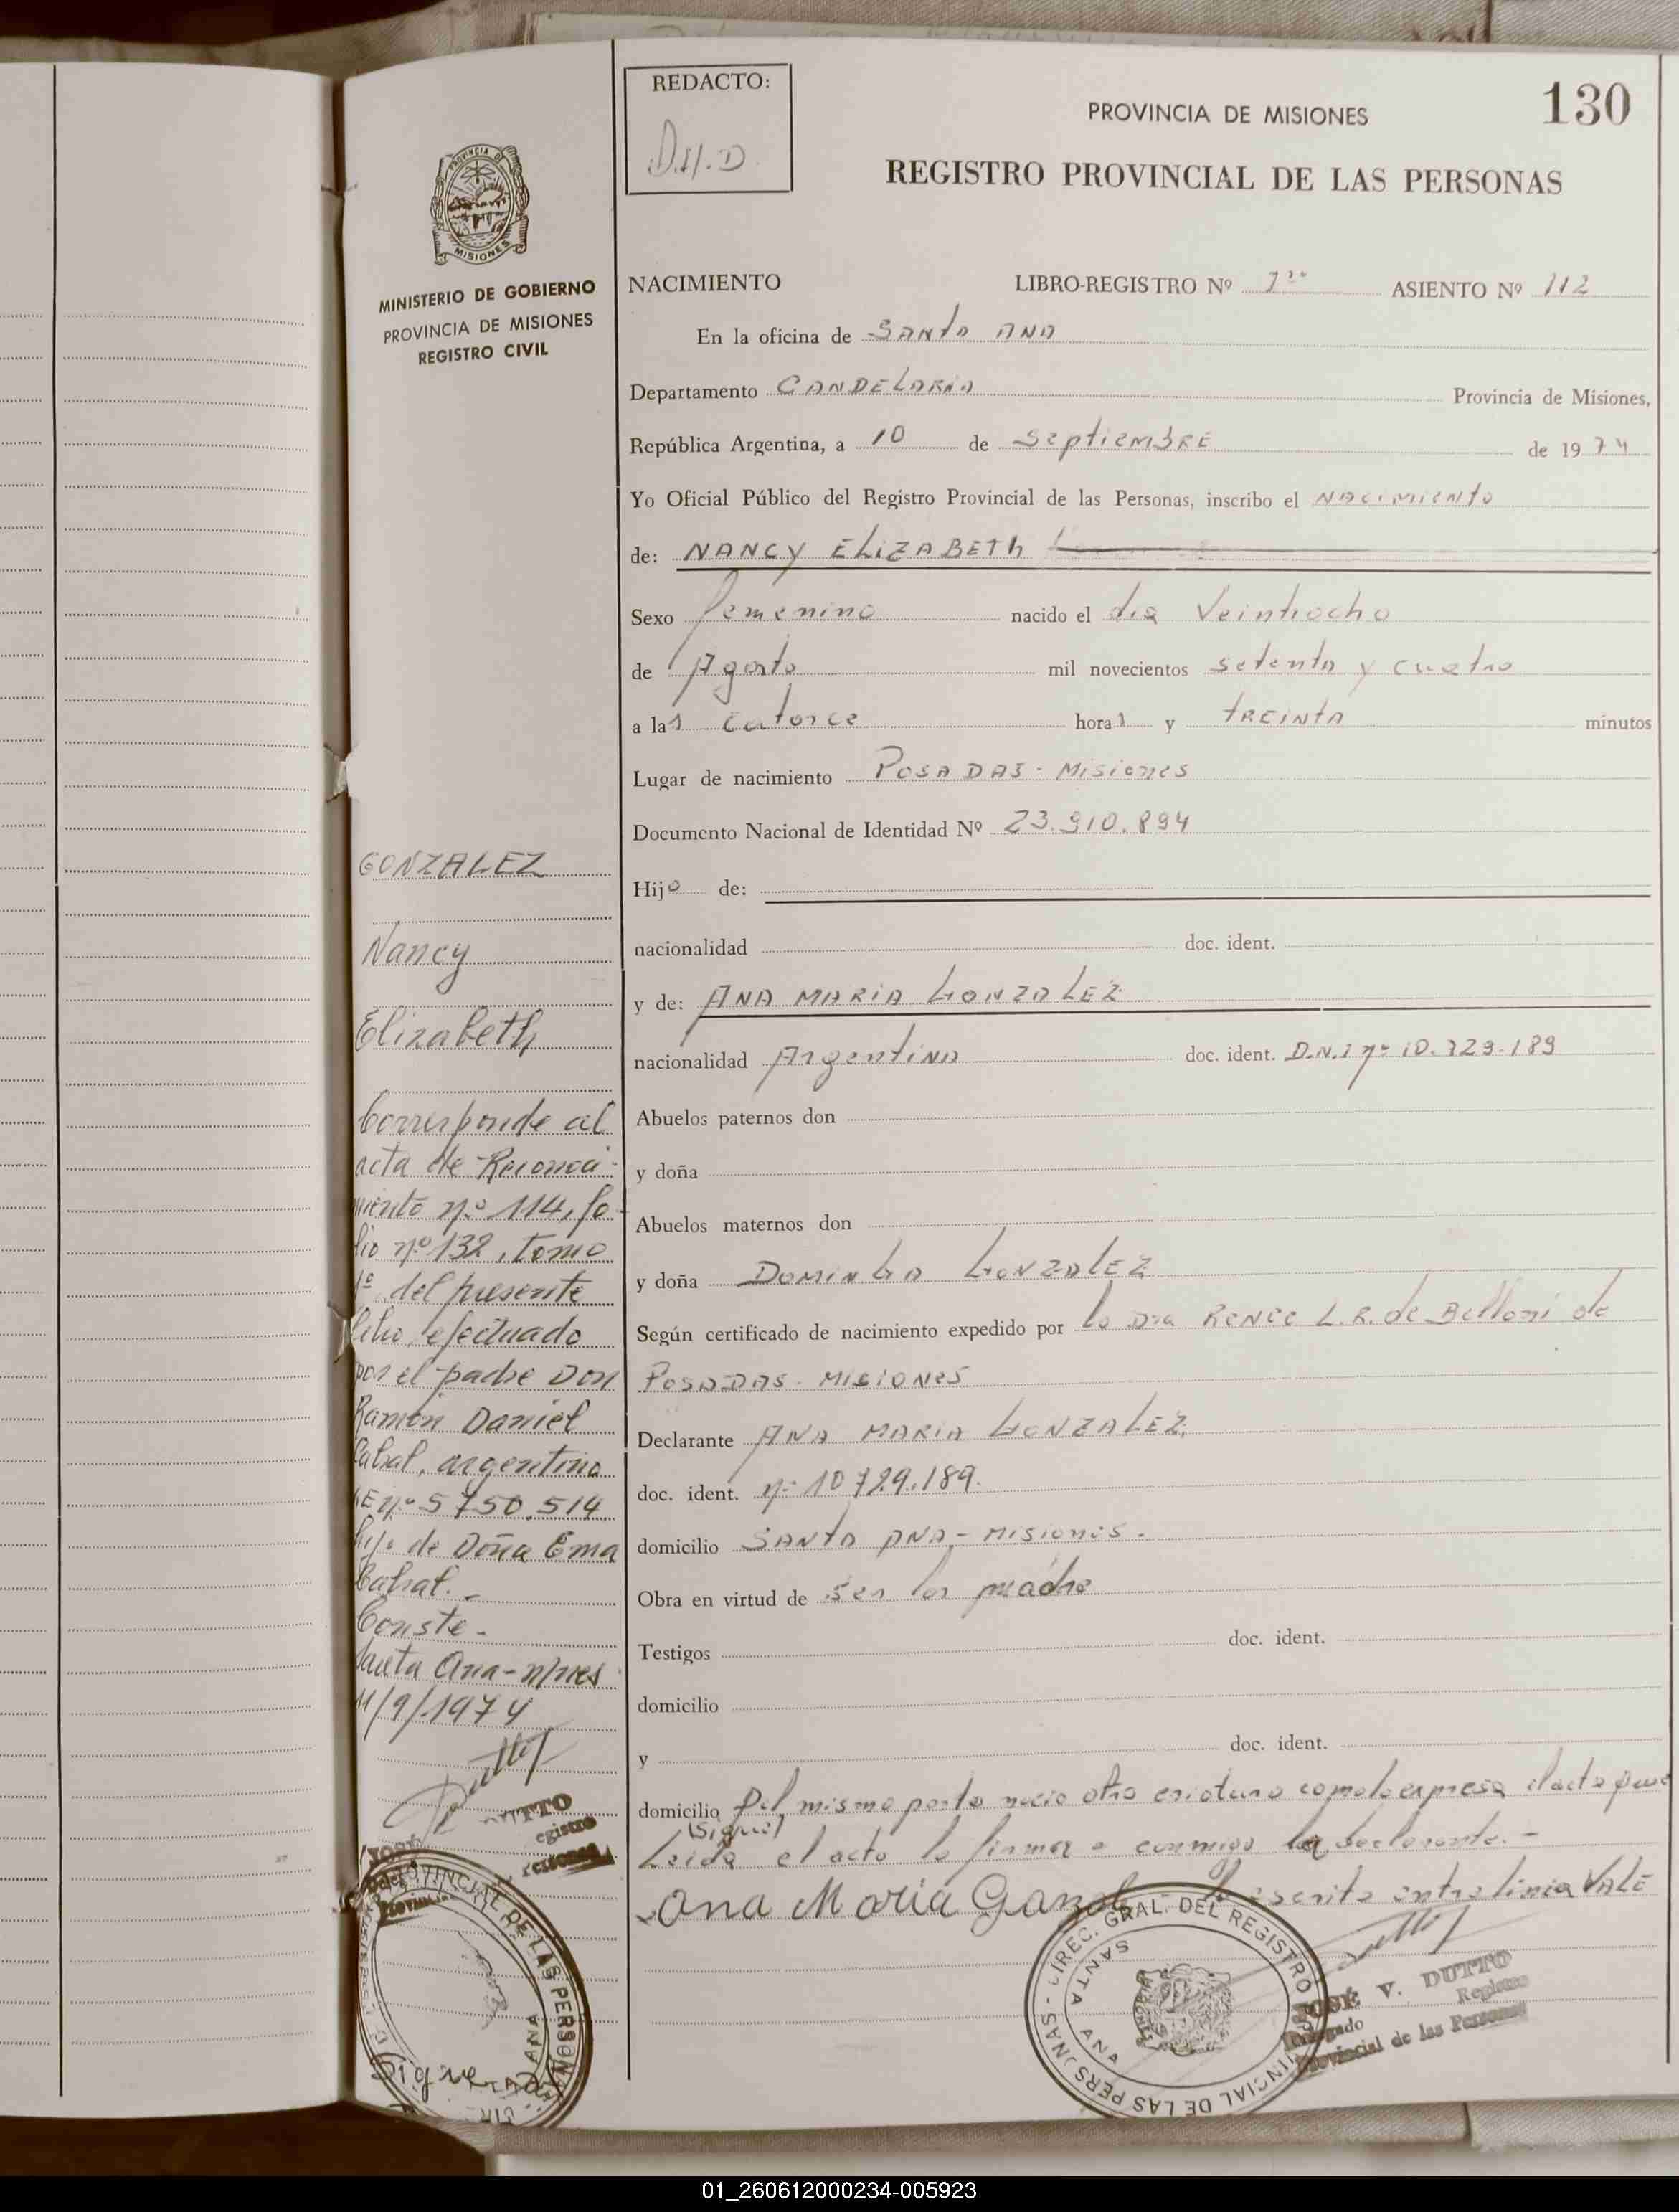 REDACTO:
D.H.D
PROVINCIA DE MISIONES
130
REGISTRO PROVINCIAL DE LAS PERSONAS
PROVINCIA DE
MISIONES
MINISTERIO DE GOBIERNO
PROVINCIA DE MISIONES
REGISTRO CIVIL
NACIMIENTO LIBRO-REGISTRO Nº 1ro ASIENTO Nº 112
En la oficina de SANTA ANA
Departamento CANDELARIA Provincia de Misiones,
República Argentina, a 10 de SeptiEMBRE de 1974
Yo Oficial Público del Registro Provincial de las Personas, inscribo el NACIMIENTO
de: NANCY ELIZABETH
Sexo femenino nacido el dia Veintiocho
de Agosto mil novecientos setenta y cuatro
a las catorce horas y tREINtA minutos
Lugar de nacimiento POSADAS - Misiones
Documento Nacional de Identidad Nº 23.910.894
Hija de:
nacionalidad doc. ident.
y de: ANA MARIA GONZALEZ
nacionalidad Argentina doc. ident. D.N.I nº 10.729.189
Abuelos paternos don
y doña
Abuelos maternos don
y doña DOMINGA GONZALEZ
Según certificado de nacimiento expedido por la Dra RENEE L.R. de Belloni de
POSADAS - MISIONES
Declarante ANA MARIA GONZALEZ.
doc. ident. nº 10729.189.
domicilio SANTA ANA - MISIONES.
Obra en virtud de ser la madre
Testigos doc. ident.
domicilio
y doc. ident.
domicilio Del mismo parto nacio otra criatura como lo expresa el acta que
(sigue)
Leida el acta la firma conmigo la declarante. -
Ana Maria Gonzalez escrito entre linea VALE
DIREC. GRAL. DEL REGISTRO PROVINCIAL DE LAS PERSONAS
SANTA ANA
JOSÉ V. DUTTO
Delegado Registro
Provincial de las Personas
GONZALEZ
Nancy
Elizabeth
Corresponde al
acta de Reconoci-
miento nº 114, fo-
lio nº 132, tomo
1º del presente
libro, efectuado
por el padre Don
Ramón Daniel
Cabal, argentino
LE nº 5750.514
hijo de Doña Ema
Cabral. -
Conste -
Santa Ana - Mnes
11/9/1974
DUTTO
egistro
Personas
PROVINCIAL DE LAS PERSONAS
ANA
Sigue
01_260612000234-005923